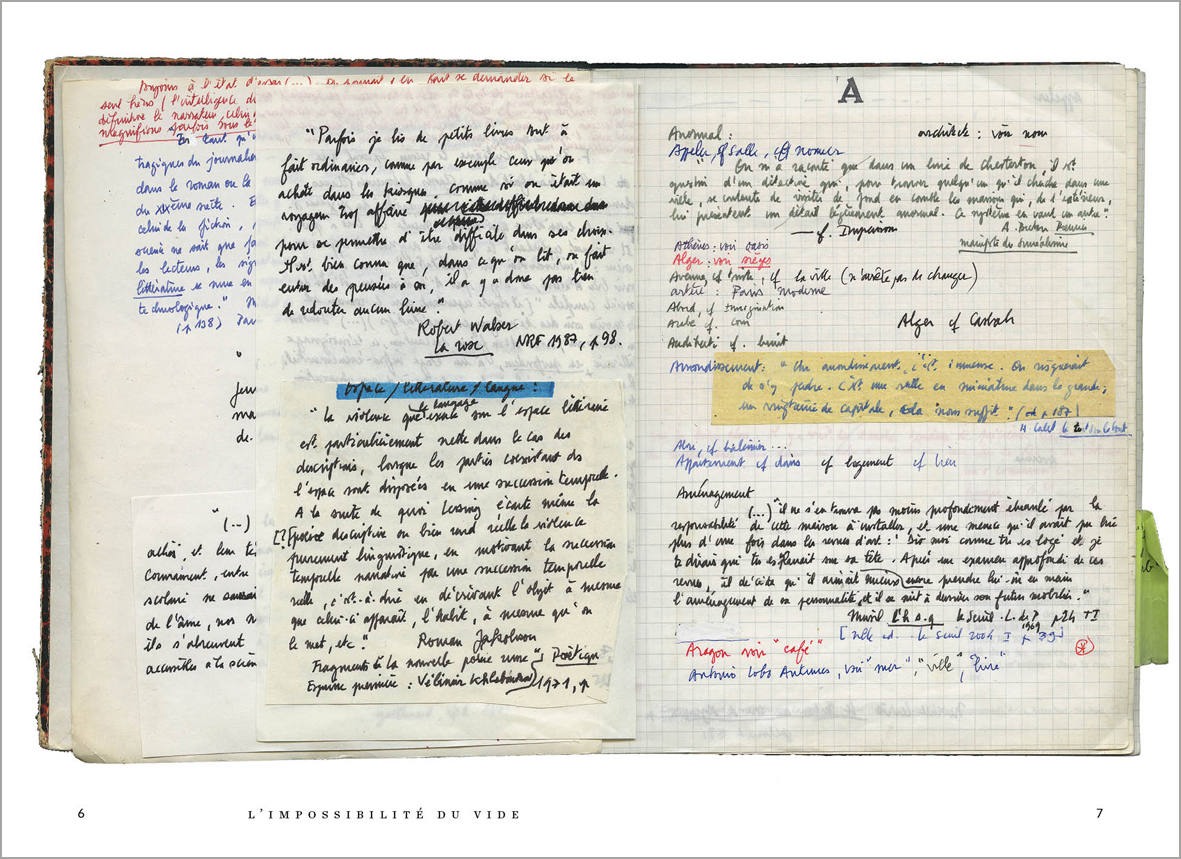 seul héros (l'intelligence d
définitive le narrateur, celui
magnifions parfois sous le
En tant qu'
tragiques du journaliste
dans le roman ou le
du XIXème siècle. E
celui de la fiction,
ne sait que
les lecteurs, les
littérature se mue en
technologique."
(p 138)
"
jeu
ma
de.
"(...)
et leur
Couramment, entre
scolaire ne
de l'âme, nos
ils s'abreuvent
accessibles à la scien
"Parfois je lis de petits livres tout à
fait ordinaires, comme par exemple ceux qu'on
achète dans les kiosques, comme si on était un
voyageur trop affairé
pour se permettre d'être difficile dans ses choix.
Il est bien connu que, dans ce qu'on lit, on fait
entrer de pensée à soi, il n'y a donc pas lieu
de redouter aucun livre."
Robert Walser
La rose NRF 1987, p 98.
Espace / littérature / langue :
"La violence que le langage exerce sur l'espace littéraire
est particulièrement nette dans le cas des
descriptions, lorsque les parties coexistant ds
l'espace sont disposées en une succession temporelle.
A la suite de quoi Lessing écarte même la
[?] poésie descriptive ou bien rend réelle la violence
purement linguistique, en motivant la succession
temporelle narrative par une succession temporelle
réelle, c'est-à-dire en décrivant l'objet à mesure
que celui-ci apparaît, l'habit, à mesure qu'on
le met, etc." Roman Jakobson
Fragments de la nouvelle poésie russe" Poétique
Esquisse première : Vélimir Khlebnikov 1971, p
A
Anormal : architecte : voir nom
Appeler, cf Salle, cf nommer
"On m'a raconté que dans un livre de Chesterton, il est
question d'un détective qui, pour trouver quelqu'un qu'il cherche dans une
ville, se contente de visiter de fond en comble les maisons qui, de l'extérieur,
lui présentent un détail légèrement anormal. Ce système en vaut un autre."
A. Breton Premier
manifeste du surréalisme
Athènes : voir oasis
Alger : voir sièges
Avenue, cf visite, cf la ville (n'arrête pas de changer)
artère : Paris moderne
Abord, cf Imagination
Arabe cf. coin Alger cf Casbah
Auditeur cf. bruit
Arrondissement : "Un arrondissement, c'est immense. On risquerait
de s'y perdre. C'est une ville en miniature dans la grande ;
un vingtième de capitale, cela nous suffit." (p 187)
H Calet le tout sur le tout.
Abri, cf baleinier...
Appartement cf dans cf logement cf lieu
Aménagement
(...) "il ne s'en trouva pas moins profondément ébranlé par la
responsabilité de cette maison à installer, et une menace qu'il avait pu lire
plus d'une fois dans les revues d'art : "Dis-moi comme tu es logé et je
te dirais qui tu es" planait sur sa tête. Après un examen approfondi de ces
revues, il décida qu'il aimait mieux encore prendre lui-même en main
l'aménagement de sa personnalité, et il se mit à dessiner son futur mobilier."
Musil L'h.s.q le Seuil p 24 T I
[Nlle ed. le Seuil 2004 I p 39]
1969
Aragon voir "café"
Antonio Lobo Antunes, voir "mer", "ville", "livre"
6 L'IMPOSSIBILITÉ DU VIDE 7